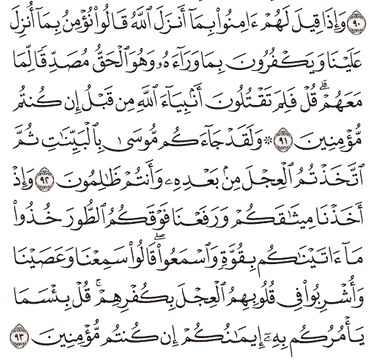 ﴿٩٠﴾ وَإِذَا قِيلَ لَهُمْ ءَامِنُوا۟ بِمَآ أَنزَلَ ٱللَّهُ قَالُوا۟ نُؤْمِنُ بِمَآ أُنزِلَ
عَلَيْنَا وَيَكْفُرُونَ بِمَا وَرَآءَهُۥ وَهُوَ ٱلْحَقُّ مُصَدِّقًا لِّمَا
مَعَهُمْ ۗ قُلْ فَلِمَ تَقْتُلُونَ أَنۢبِيَآءَ ٱللَّهِ مِن قَبْلُ إِن كُنتُم
مُّؤْمِنِينَ ﴿٩١﴾ ۞ وَلَقَدْ جَآءَكُم مُّوسَىٰ بِٱلْبَيِّنَٰتِ ثُمَّ
ٱتَّخَذْتُمُ ٱلْعِجْلَ مِنۢ بَعْدِهِۦ وَأَنتُمْ ظَٰلِمُونَ ﴿٩٢﴾ وَإِذْ
أَخَذْنَا مِيثَٰقَكُمْ وَرَفَعْنَا فَوْقَكُمُ ٱلطُّورَ خُذُوا۟
مَآ ءَاتَيْنَٰكُم بِقُوَّةٍ وَٱسْمَعُوا۟ ۖ قَالُوا۟ سَمِعْنَا وَعَصَيْنَا
وَأُشْرِبُوا۟ فِى قُلُوبِهِمُ ٱلْعِجْلَ بِكُفْرِهِمْ ۚ قُلْ بِئْسَمَا
يَأْمُرُكُم بِهِۦٓ إِيمَٰنُكُمْ إِن كُنتُم مُّؤْمِنِينَ ﴿٩٣﴾